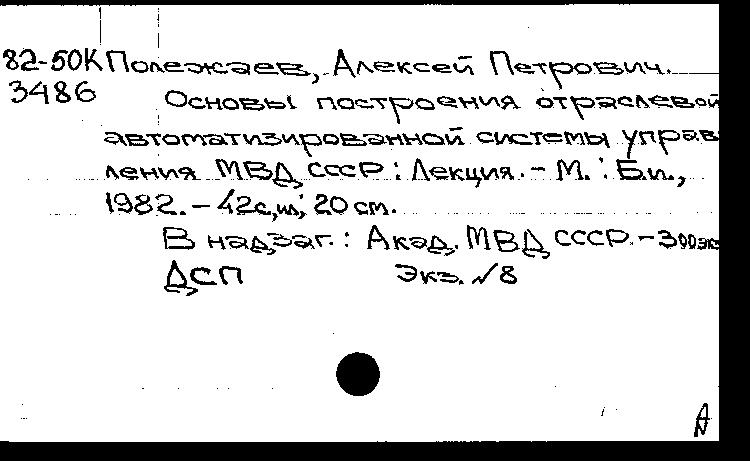 82-50К Полежаев, Алексей Петрович.
3486 Основы построения отраслевой
автоматизированной системы управ
ления МВД СССР : Лекция. - М. : Б.и.,
1982. - 42с., ил.; 20 см.
В надзаг. : Акад. МВД СССР. - 300 экз
ДСП Экз. №8